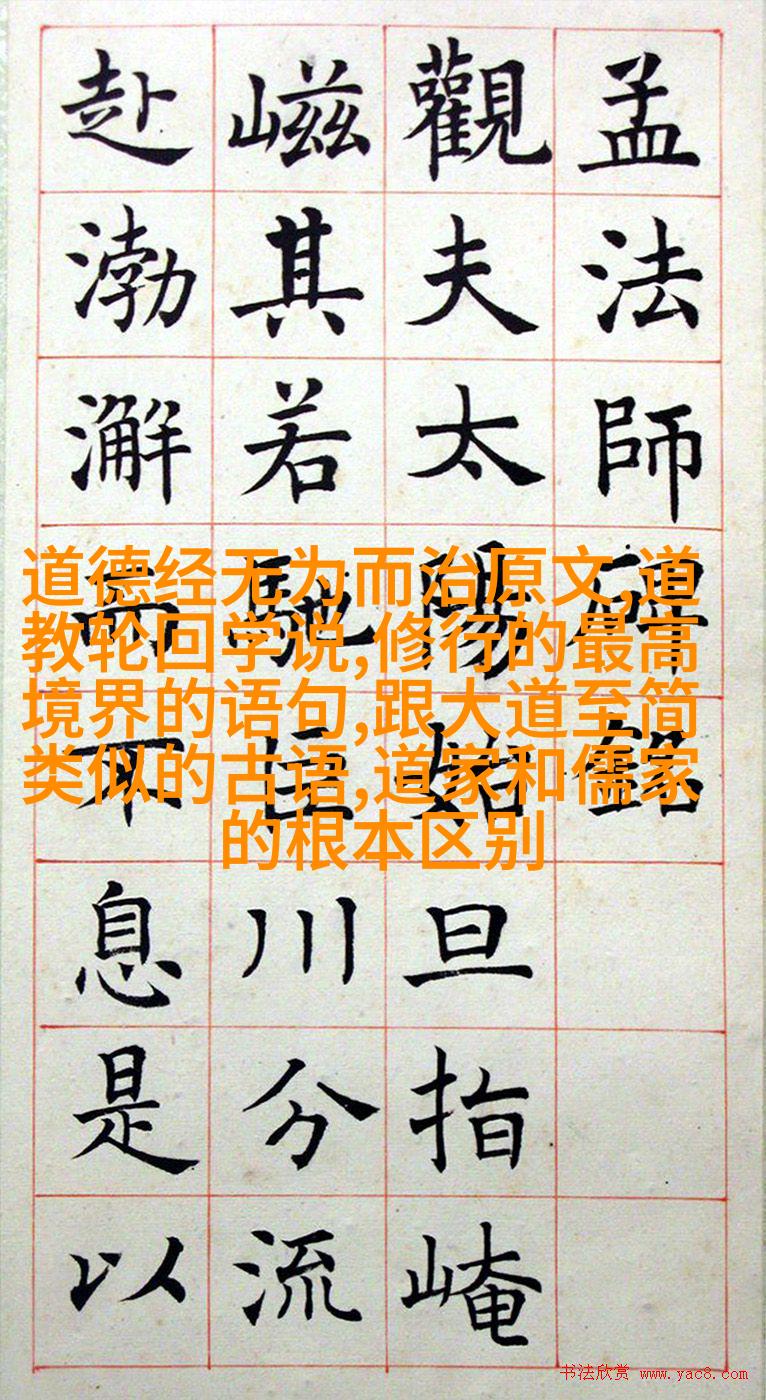 孟法師碑銘
觀夫太陽始旦指崦
嵫其若馳巨川分流
赴渤澥而不息是以
道德经无为而治原文,道
教轮回学说,修行的最高
境界的语句,跟大道至简
类似的古语,道家和儒家
的根本区别
书法欣赏 www.yac8.com